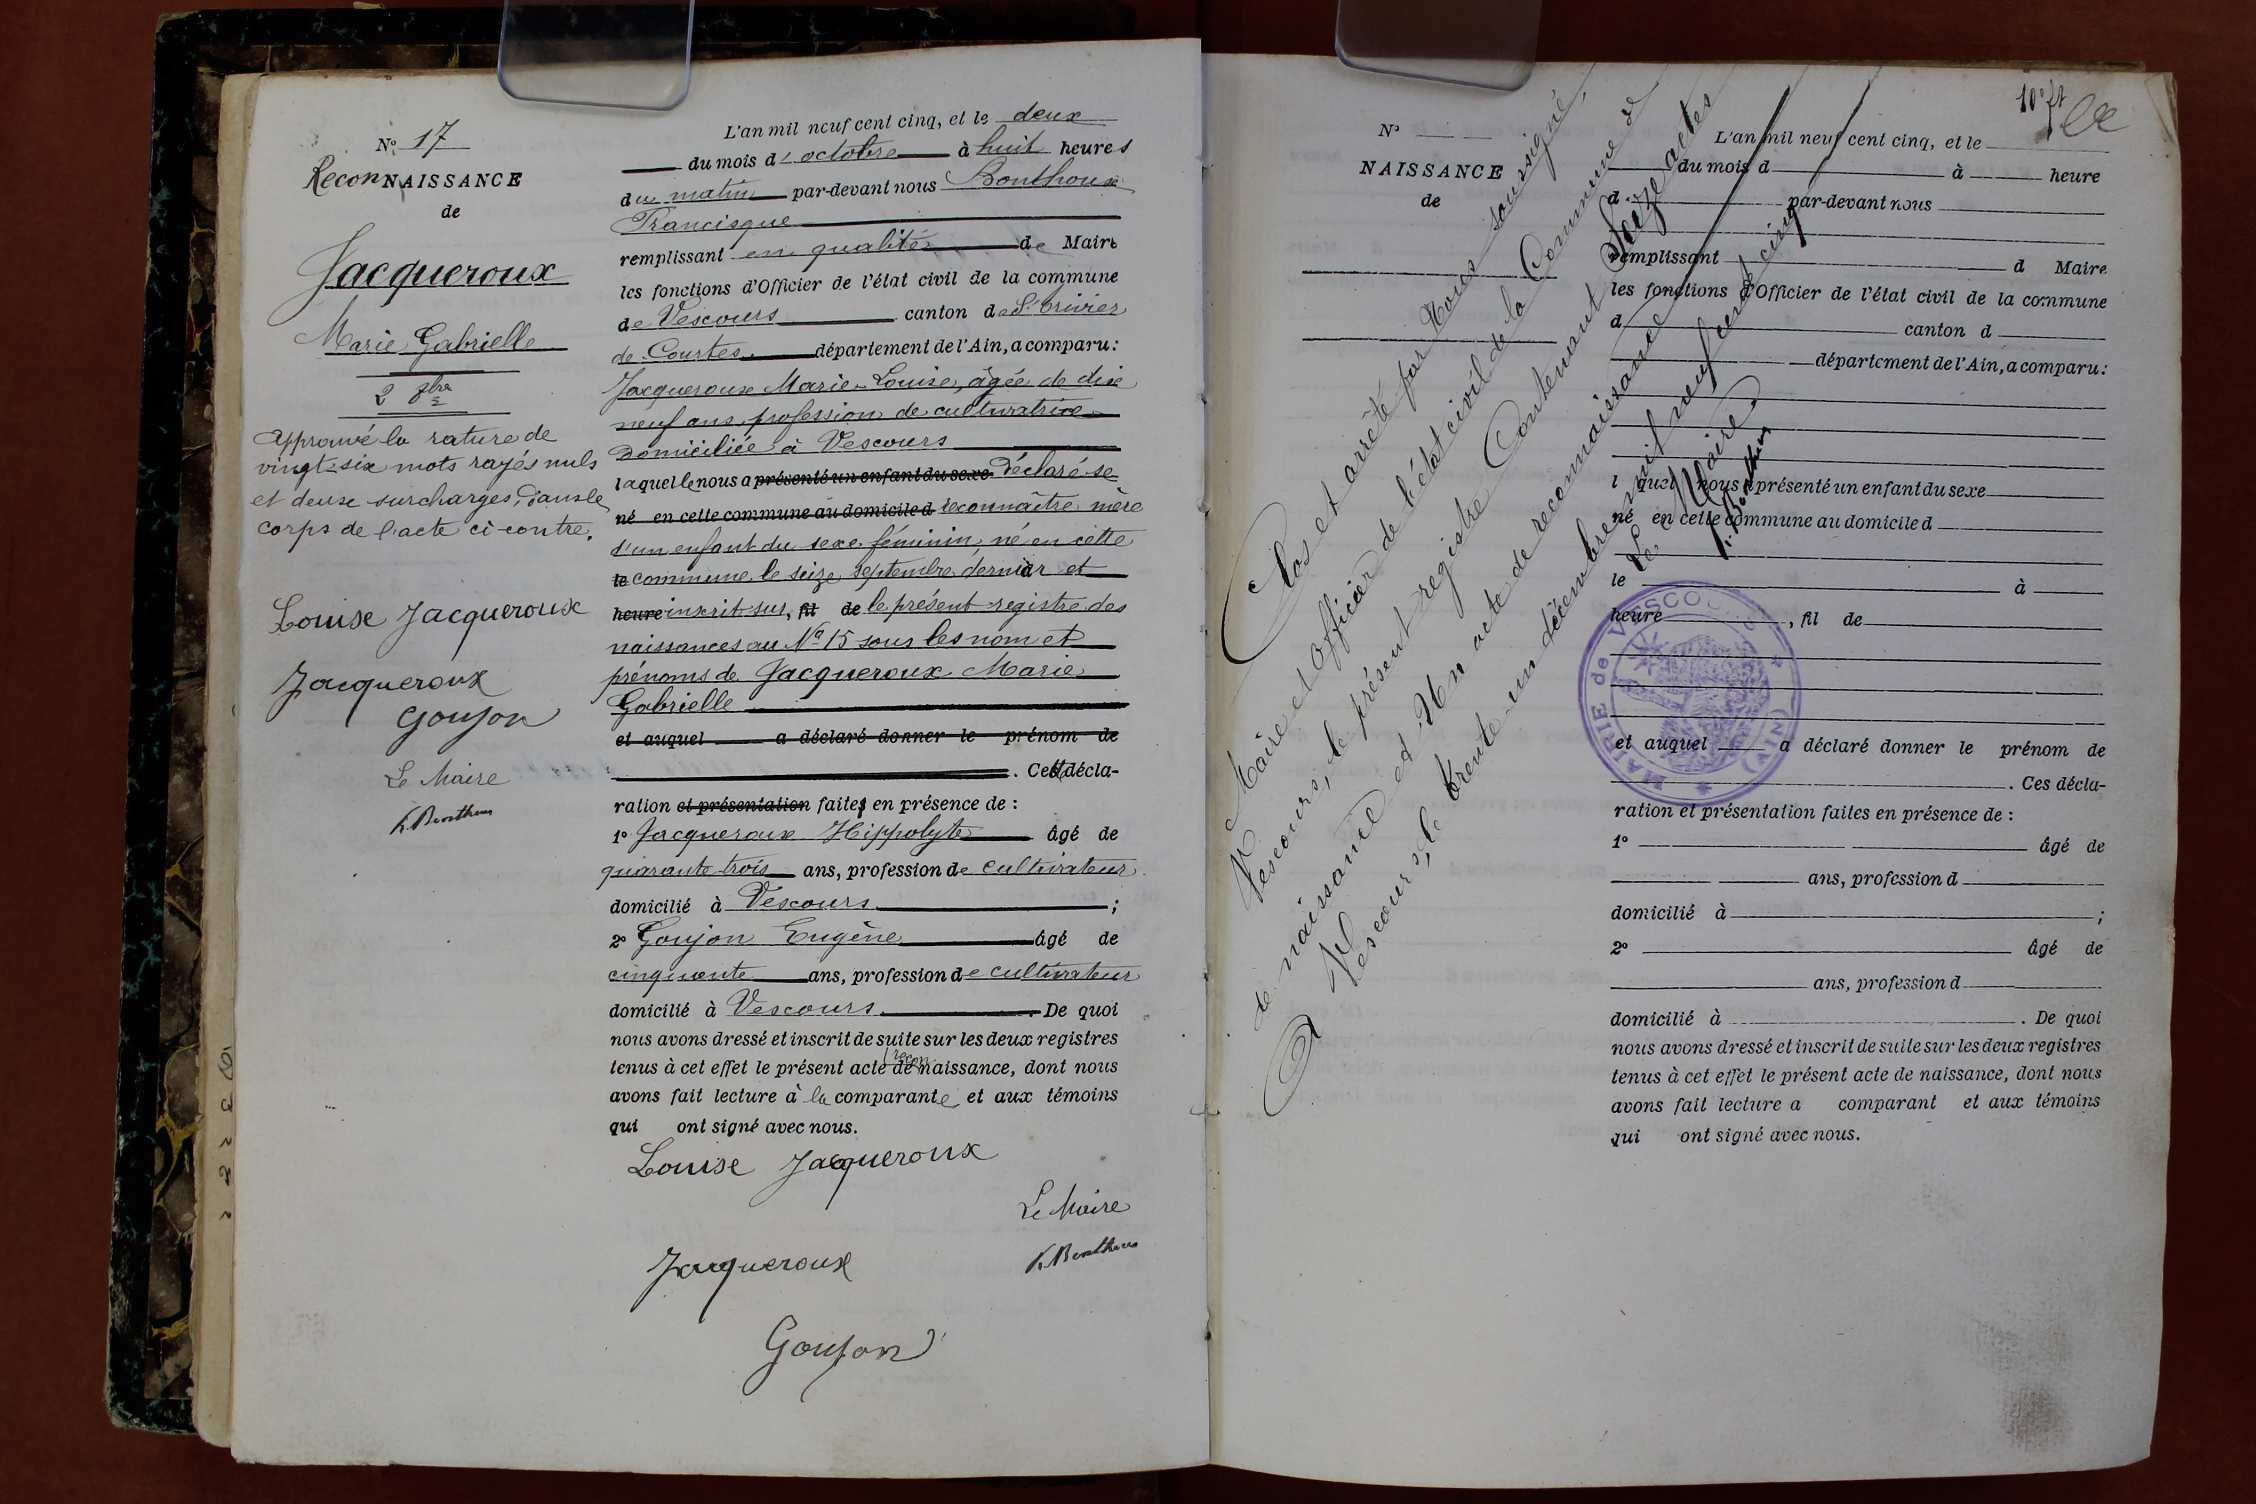 N° 17
ReconNAISSANCE
de
Jacqueroux
Marie Gabrielle
2 8bre
Approuvé la rature de
vingt-six mots rayés nuls
et deux surcharges, dans le
corps de l'acte ci-contre.
Louise Jacqueroux
Jacqueroux
Goujon
Le Maire
F. Bonthoux
L'an mil neuf cent cinq, et le deux
du mois d'octobre à huit heures
du matin par-devant nous Bonthoux
Francisque
remplissant en qualité de Maire
les fonctions d'Officier de l'état civil de la commune
de Vescours canton de St Trivier
de Courtes département de l'Ain, a comparu :
Jacqueroux Marie-Louise, âgée de dix
neuf ans, profession de cultivatrice
domiciliée à Vescours
laquelle nous a présenté un enfant du sexe déclaré se
né en cette commune au domicile d reconnaître mère
d'un enfant du sexe féminin, né en cette
le commune le seize septembre dernier et
heure inscrit sur, fil de le présent registre des
naissances au N° 15 sous les nom et
prénoms de Jacqueroux Marie
Gabrielle
et auquel a déclaré donner le prénom de
. Cette décla-
ration et présentation faites en présence de :
1° Jacqueroux Hippolyte âgé de
quarante-trois ans, profession de cultivateur
domicilié à Vescours ;
2° Goujon Eugène âgé de
cinquante ans, profession de cultivateur
domicilié à Vescours . De quoi
nous avons dressé et inscrit de suite sur les deux registres
tenus à cet effet le présent acte de reconnaissance, dont nous
avons fait lecture à la comparante et aux témoins
qui ont signé avec nous.
Louise Jacqueroux
Le Maire
F. Bonthoux
Jacqueroux
Goujon
10e ft
N°
NAISSANCE
de
L'an mil neuf cent cinq, et le
du mois d à heure
d par-devant nous
remplissant d Maire
les fonctions d'Officier de l'état civil de la commune
d canton d
département de l'Ain, a comparu :
l quel nous a présenté un enfant du sexe
né en cette commune au domicile d
le à
heure , fil de
et auquel a déclaré donner le prénom de
. Ces décla-
ration et présentation faites en présence de :
1° âgé de
ans, profession d
domicilié à ;
2° âgé de
ans, profession d
domicilié à . De quoi
nous avons dressé et inscrit de suite sur les deux registres
tenus à cet effet le présent acte de naissance, dont nous
avons fait lecture a comparant et aux témoins
qui ont signé avec nous.
Clos et arrêté par Nous soussigné,
Maire et Officier de l'état civil de la Commune de
Vescours, le présent registre Contenant Seize actes
de naissance et Un acte de reconnaissance
A Vescours, le trente un décembre mil neuf cent cinq
Le Maire.
F. Bonthoux
MAIRIE de VESCOURS (AIN)